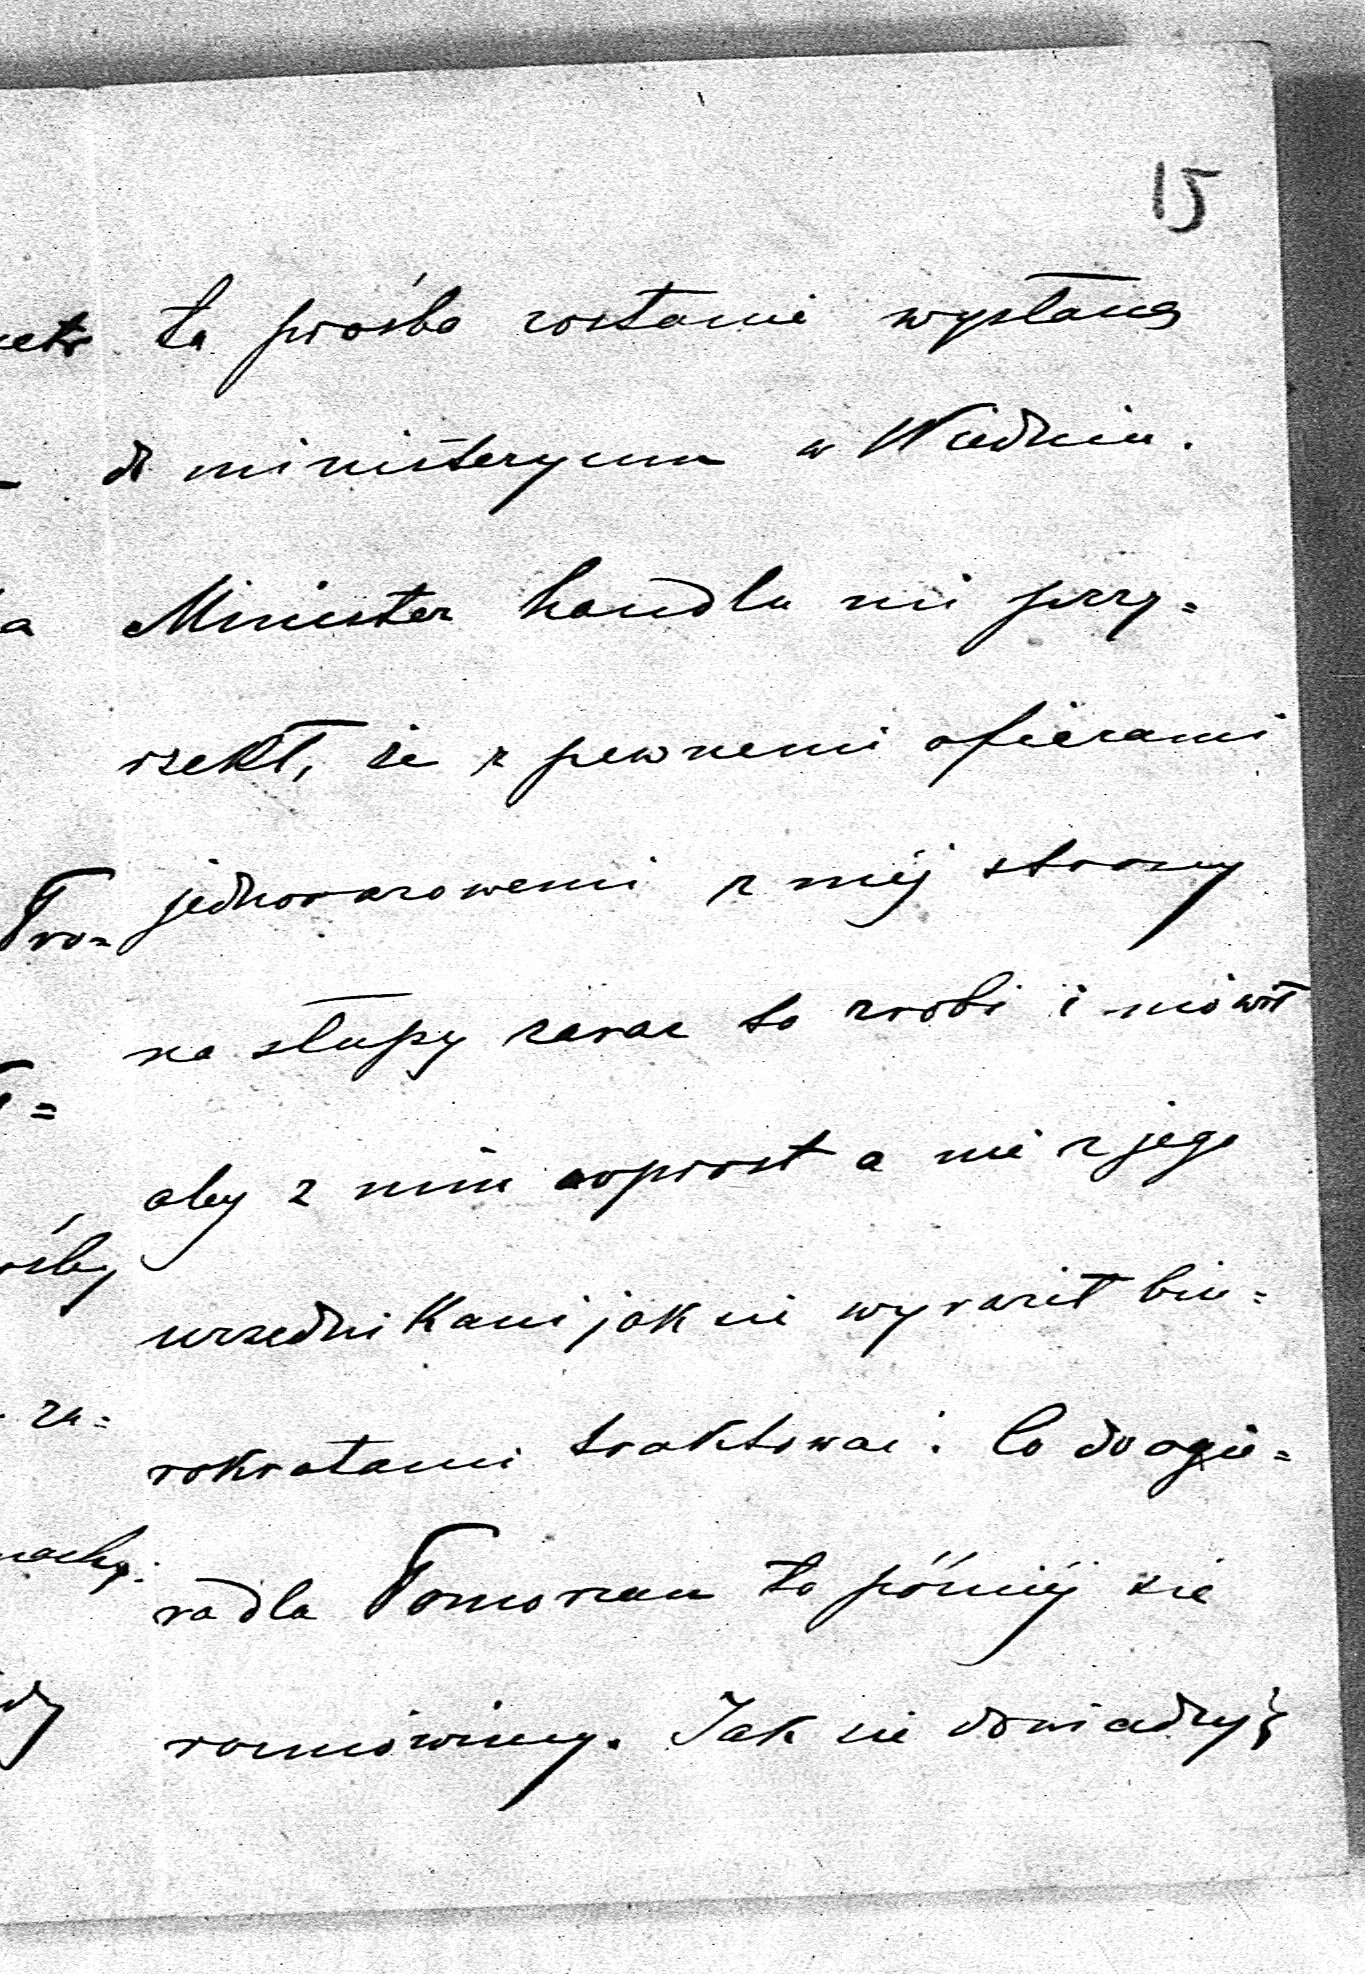 15
ta prośba zostanie wysłaną
do ministeryum w Wiedniu.
Minister handlu mi przy=
rzekł, że z pewnemi ofierami
jednorazowemi z méj strony
na słupy zaraz to zrobi i mówił
aby z nim wprost a nie z jego
urzednikami jak sie wyraził biu=
rokratami traktować. Co do ogie=
ra dla Pomorzan to późniéj sie
rozmówimy. Jak sie dowiaduję